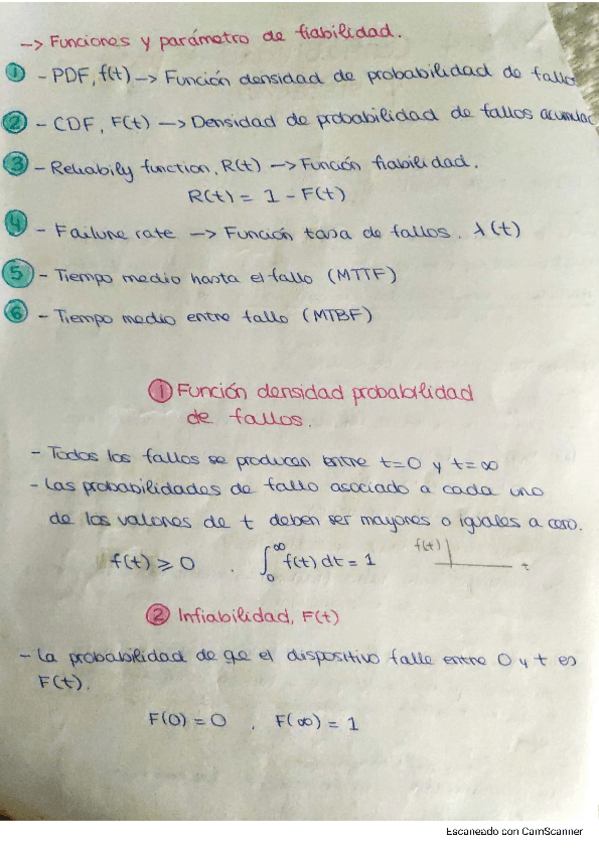 -> Funciones y parámetro de fiabilidad.
① - PDF, f(t) -> Función densidad de probabilidad de fallo
② - CDF, F(t) -> Densidad de probabilidad de fallos acumulac
③ - Reliabily function, R(t) -> Función fiabilidad.
R(t) = 1 - F(t)
④ - Failure rate -> Función tasa de fallos. λ(t)
⑤ - Tiempo medio hasta el fallo (MTTF)
⑥ - Tiempo medio entre fallo (MTBF)
① Función densidad probabilidad
de fallos.
- Todos los fallos se producen entre t=0 y t=∞
- Las probabilidades de fallo asociado a cada uno
de los valores de t deben ser mayores o iguales a cero.
f(t) ⩾ 0 . ∫₀^∞ f(t) dt = 1 f(t) t
② Infiabilidad, F(t)
- La probabilidad de qe el dispositivo falle entre 0 y t es
F(t).
F(0) = 0 . F(∞) = 1
Escaneado con CamScanner